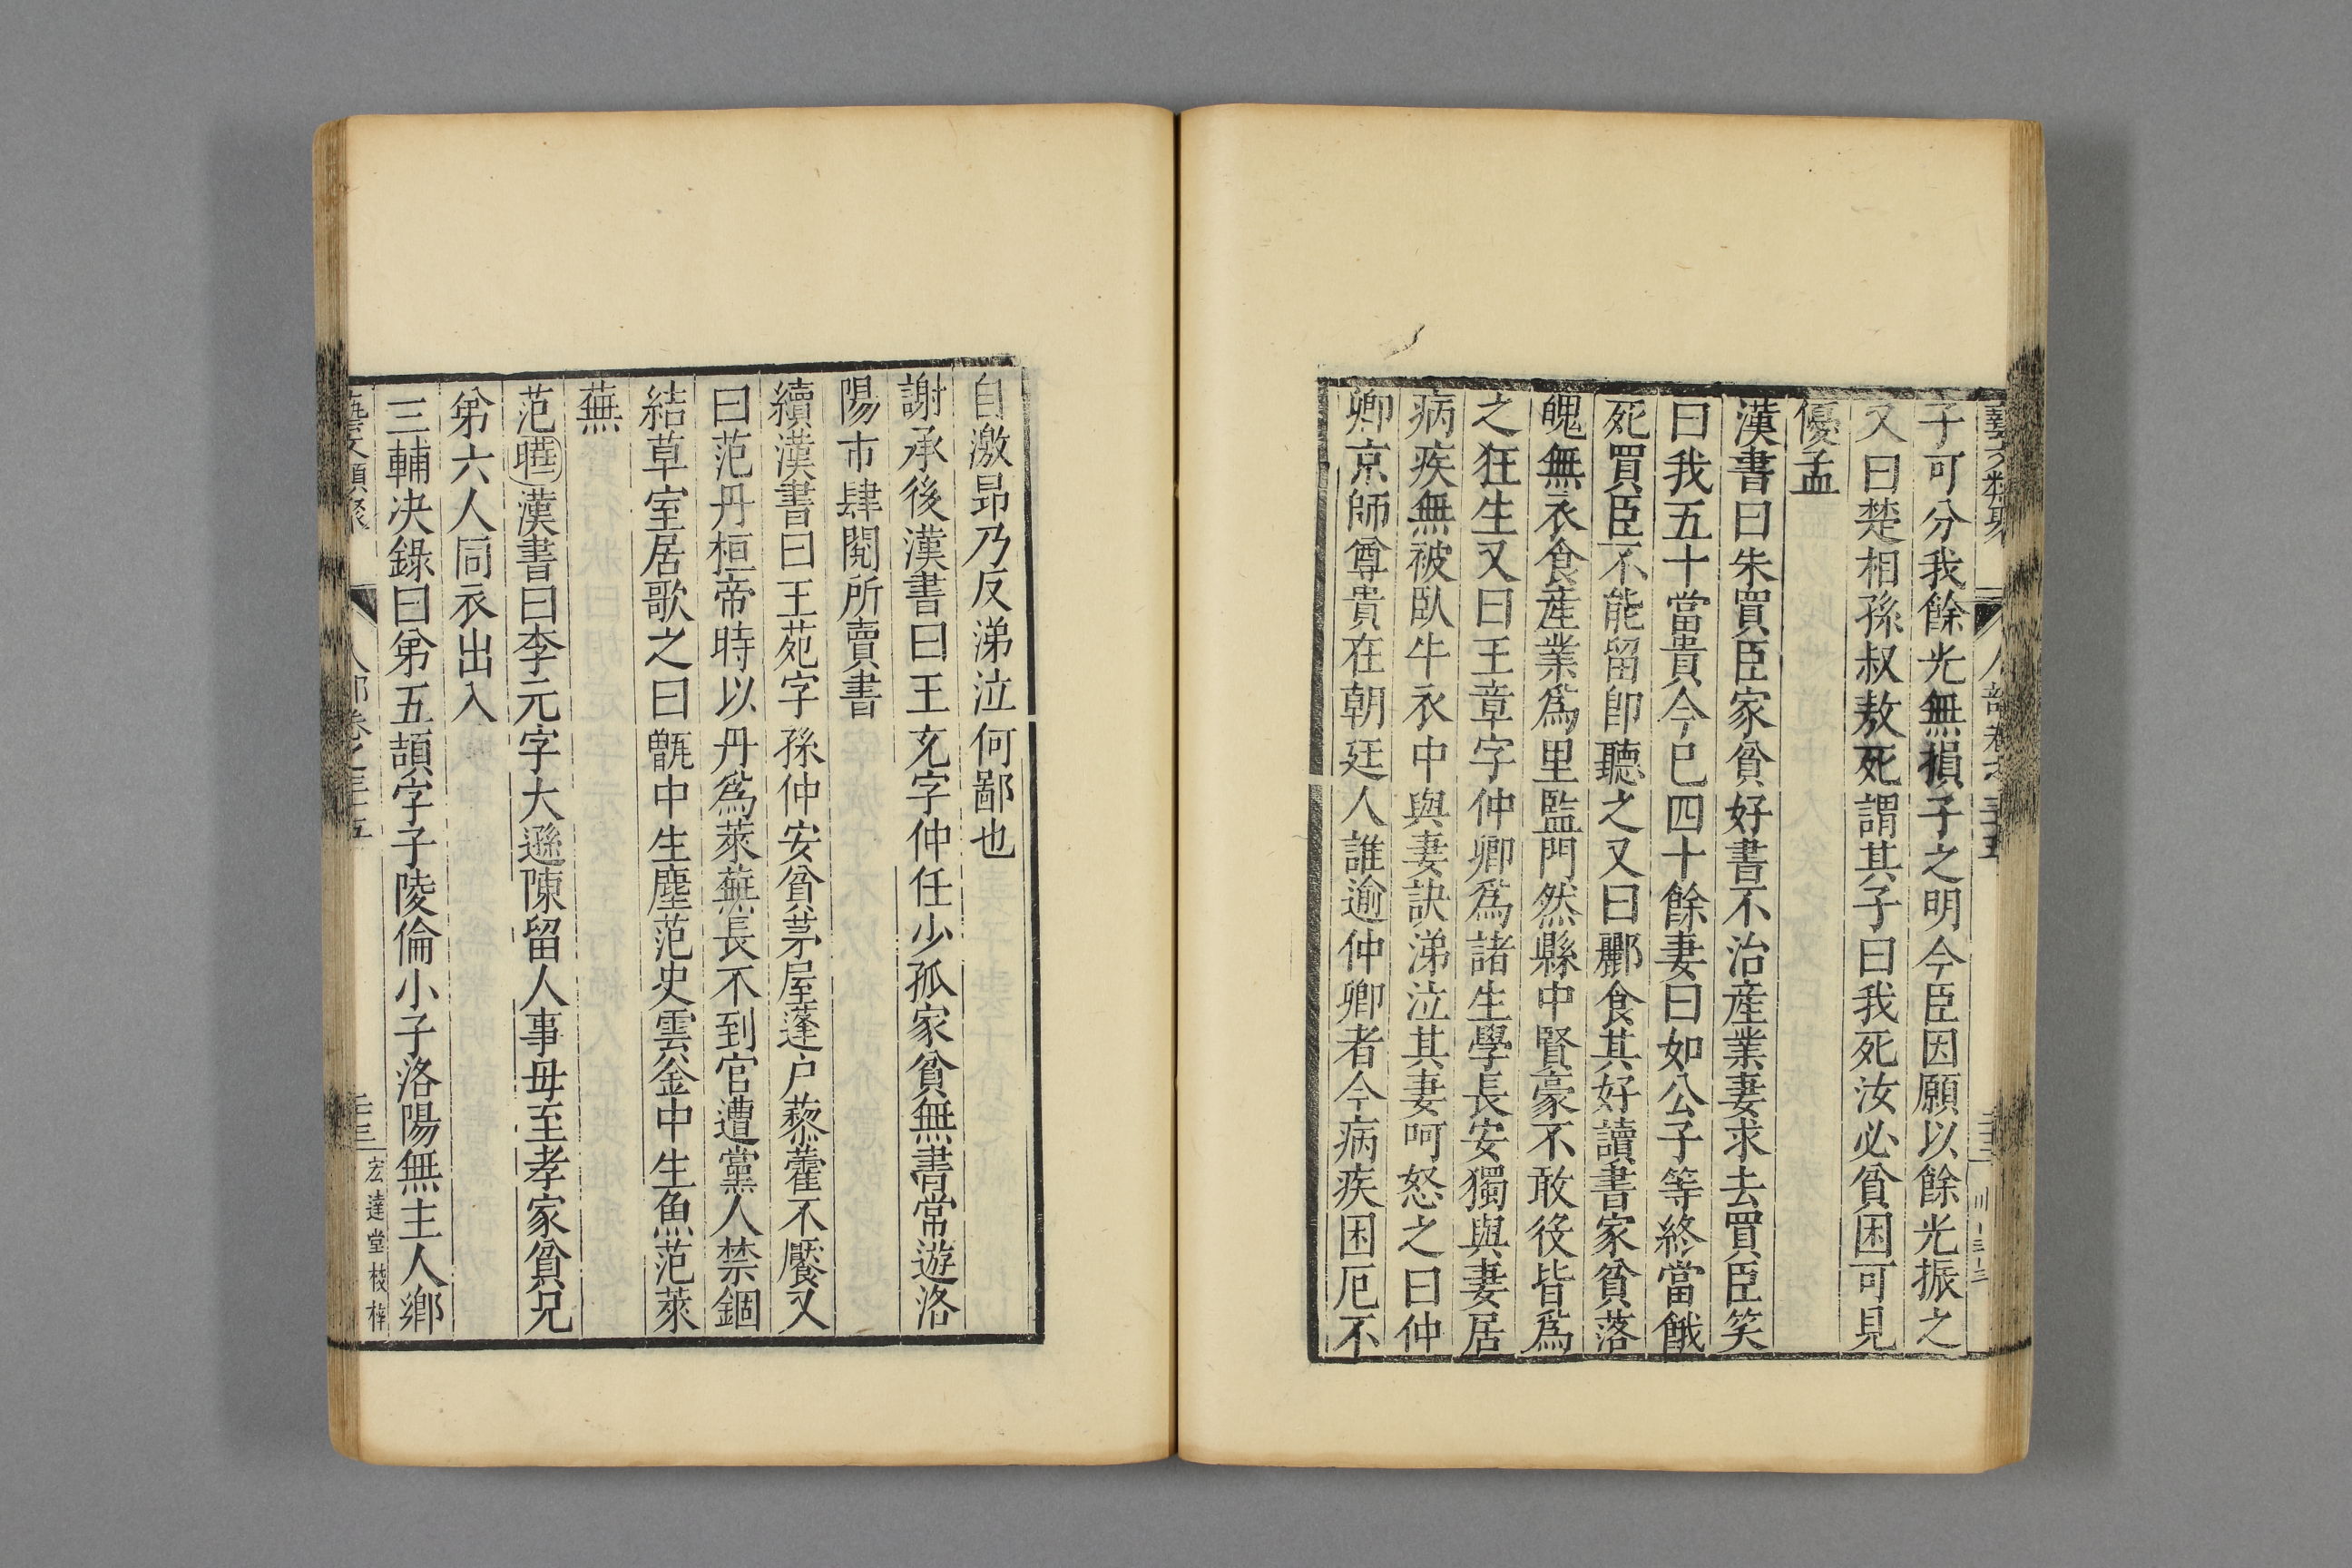 子可分我餘光無損子之明今臣因願以餘光振之
又曰楚相孫叔敖死謂其子曰我死汝必貧困可見
優孟
漢書曰朱買臣家貧好書不治産業妻求去買臣笑
曰我五十當貴今巳四十餘妻曰如公子等終當餓
死買臣不能留卽聽之又曰酈食其好讀書家貧落
魄無衣食産業爲里監門然縣中賢豪不敢役皆爲
之狂生又曰王章字仲卿爲諸生學長安獨與妻居
病疾無被臥牛衣中與妻訣涕泣其妻呵怒之曰仲
卿京師尊貴在朝廷人誰逾仲卿者今病疾困厄不
自激昻乃反涕泣何鄙也
謝承後漢書曰王充字仲任少孤家貧無書常遊洛
陽市肆閱所賣書
續漢書曰王苑字孫仲安貧茅屋蓬户藜藿不饜又
曰范丹桓帝時以丹爲萊蕪長不到官遭黨人禁錮
結草室居歌之曰甑中生塵范史雲釡中生魚范萊
蕪
范曄漢書曰李元字大遜陳留人事毋至孝家貧兄
弟六人同衣出入
三輔決錄曰弟五頡字子陵倫小子洛陽無主人鄉
藝文類聚 人部卷之三十五 宏達堂校梓